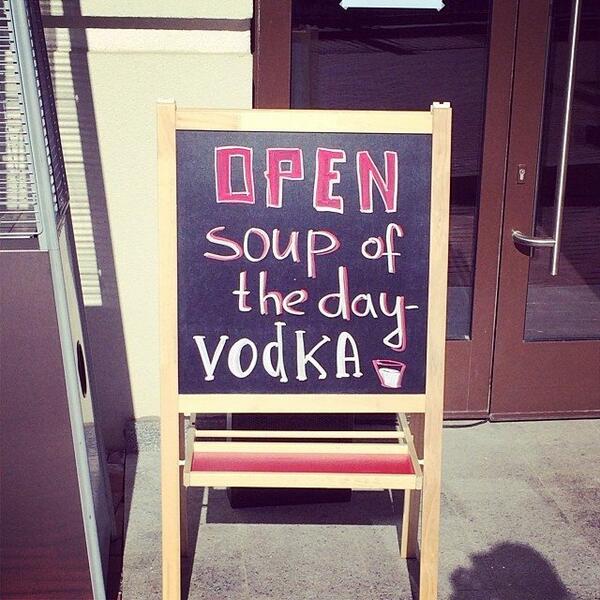 OPEN
soup of
the day-
VODKA